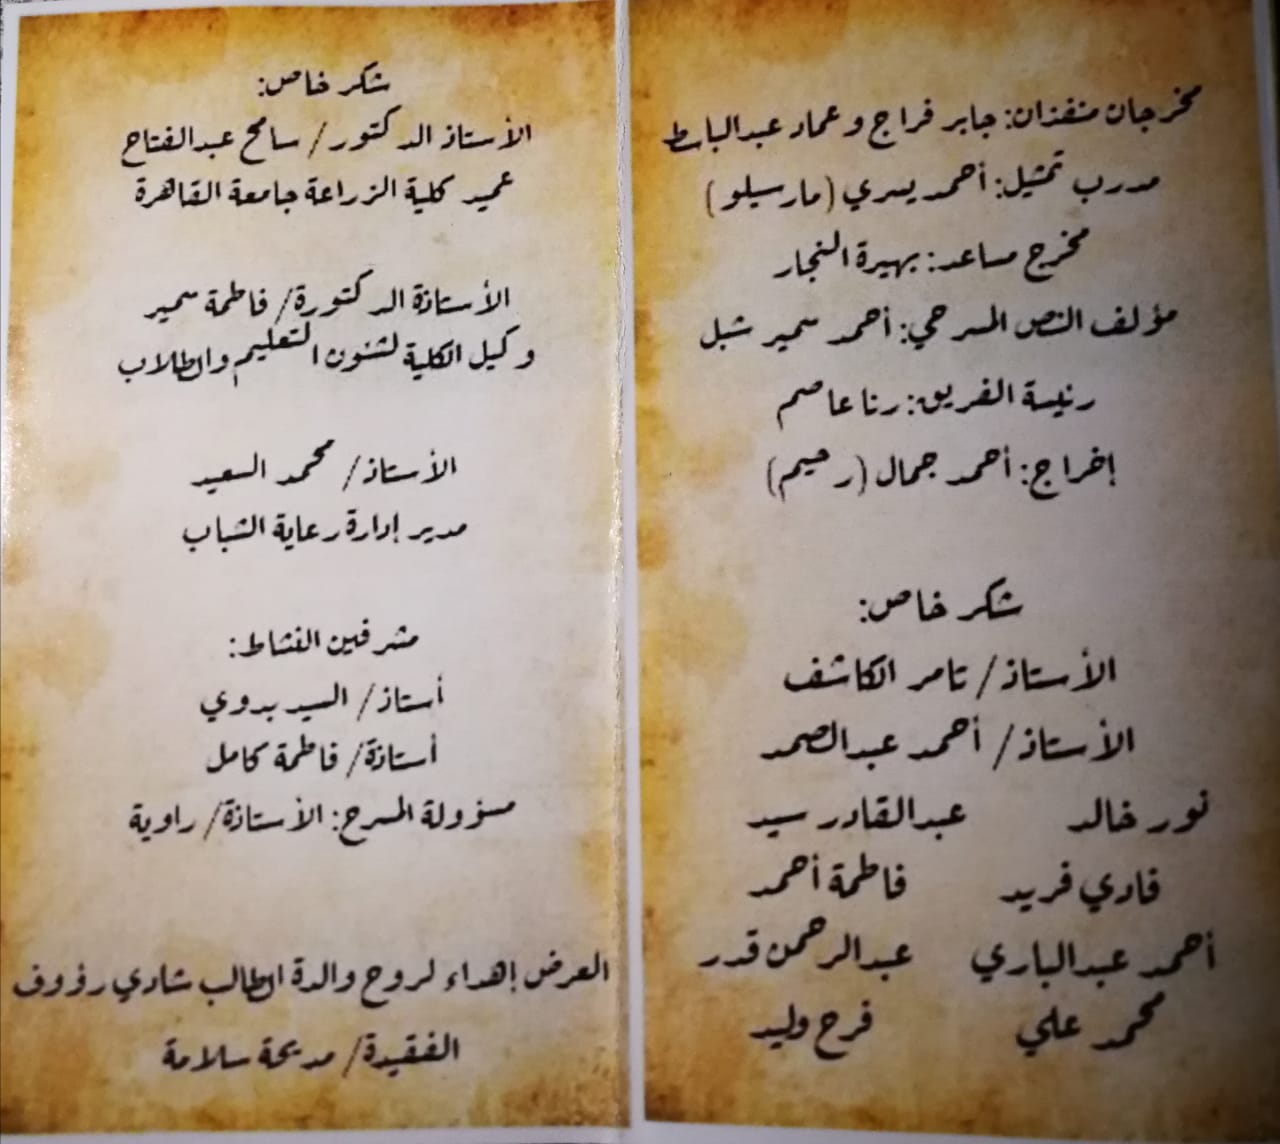 مخرجان منفذان: جابر فراج وعماد عبدالباسط
مدرب تمثيل: أحمد يسري (مارسيلو)
مخرج مساعد: بهيرة النجار
مؤلف النص المسرحي: أحمد سمير شبل
رئيسة الفريق: رنا عاصم
إخراج: أحمد جمال (رحيم)
شكر خاص:
الأستاذ/ تامر الكاشف
الأستاذ/ أحمد عبدالصمد
نور خالد عبدالقادر سيد
فادي فريد فاطمة أحمد
أحمد عبدالباري عبدالرحمن قدر
محمد علي فرح وليد
شكر خاص:
الأستاذ الدكتور/ سامح عبدالفتاح
عميد كلية الزراعة جامعة القاهرة
الأستاذة الدكتورة/ فاطمة سمير
وكيل الكلية لشئون التعليم والطلاب
الأستاذ/ محمد السعيد
مدير إدارة رعاية الشباب
مشرفين النشاط:
أستاذ/ السيد بدوي
أستاذة/ فاطمة كامل
مسؤولة المسرح: الأستاذة/ راوية
العرض إهداء لروح والدة الطالب شادي رؤوف
الفقيدة/ مديحة سلامة